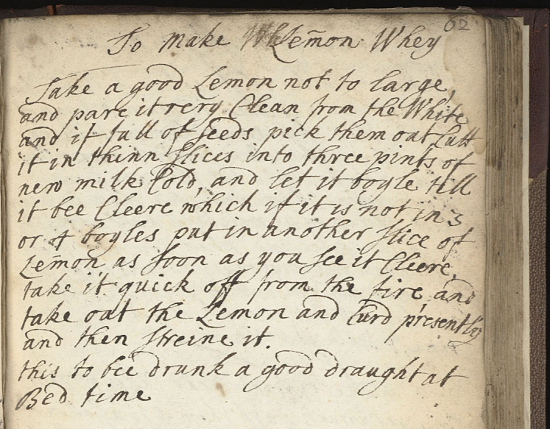 62
To Make Lemon Whey
Take a good Lemon not to large,
and pare it very Clean from the White
and if full of seeds peck them out Cutt
it in thinn slices into three pints of
new milk Cold, and let it boyle till
it bee Cleere which if it is not in 3
or 4 boyles put in another slice of
Lemon as soon as you see it Cleere,
take it quick off from the fire and
take out the Lemon and Curd presently
and then streine it.
this to bee drunk a good draught at
Bed time